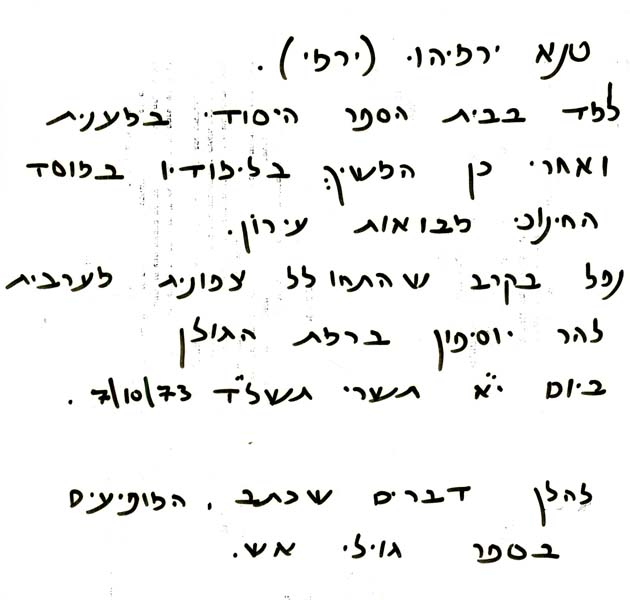 טנא ירמיהו (ירמי).
למד בבית הספר היסודי במענית
ואחרי כן המשיך בלימודיו במוסד
החינוכי מבואות עירון.
נפל בקרב שהתחולל צפונית מערבית
להר יוסיפון ברמת הגולן
ביום י"א תשרי תשל"ד 7/10/73.
להלן דברים שכתב, המופיעים
בספר גוילי אש.